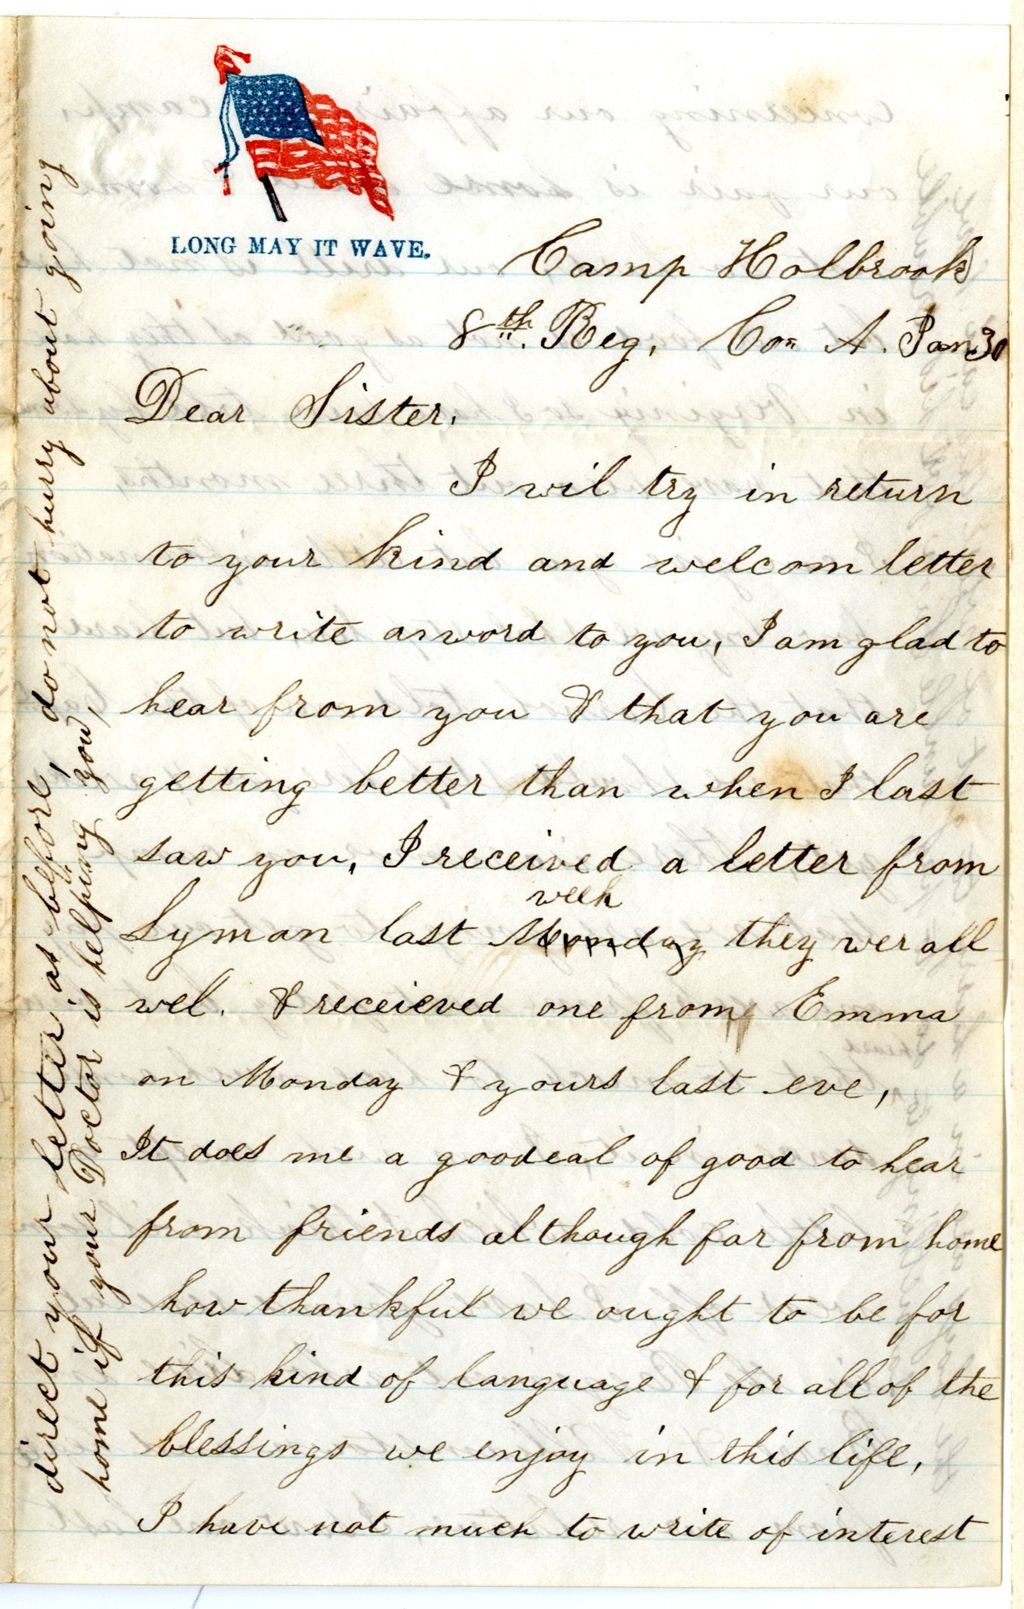 LONG MAY IT WAVE.
Camp Holbrook
8th. Reg, Co. A. Jan. 30
Dear Sister,
I wil try in return
to your kind and welcom letter
to write a word to you, I am glad to
hear from you & that you are
getting better than when I last
saw you, I received a letter from
week
Lyman last Monday they wer all
wel. & receieved one from Emma
on Monday & yours last eve,
It does me a goodeal of good to hear
from friends although far from home
how thankful we ought to be for
this kind of language & for all of the
blessings we enjoy in this life,
I have not much to write of interest
direct your letter as before, do not hurry about going
home if your Doctor is helping you,